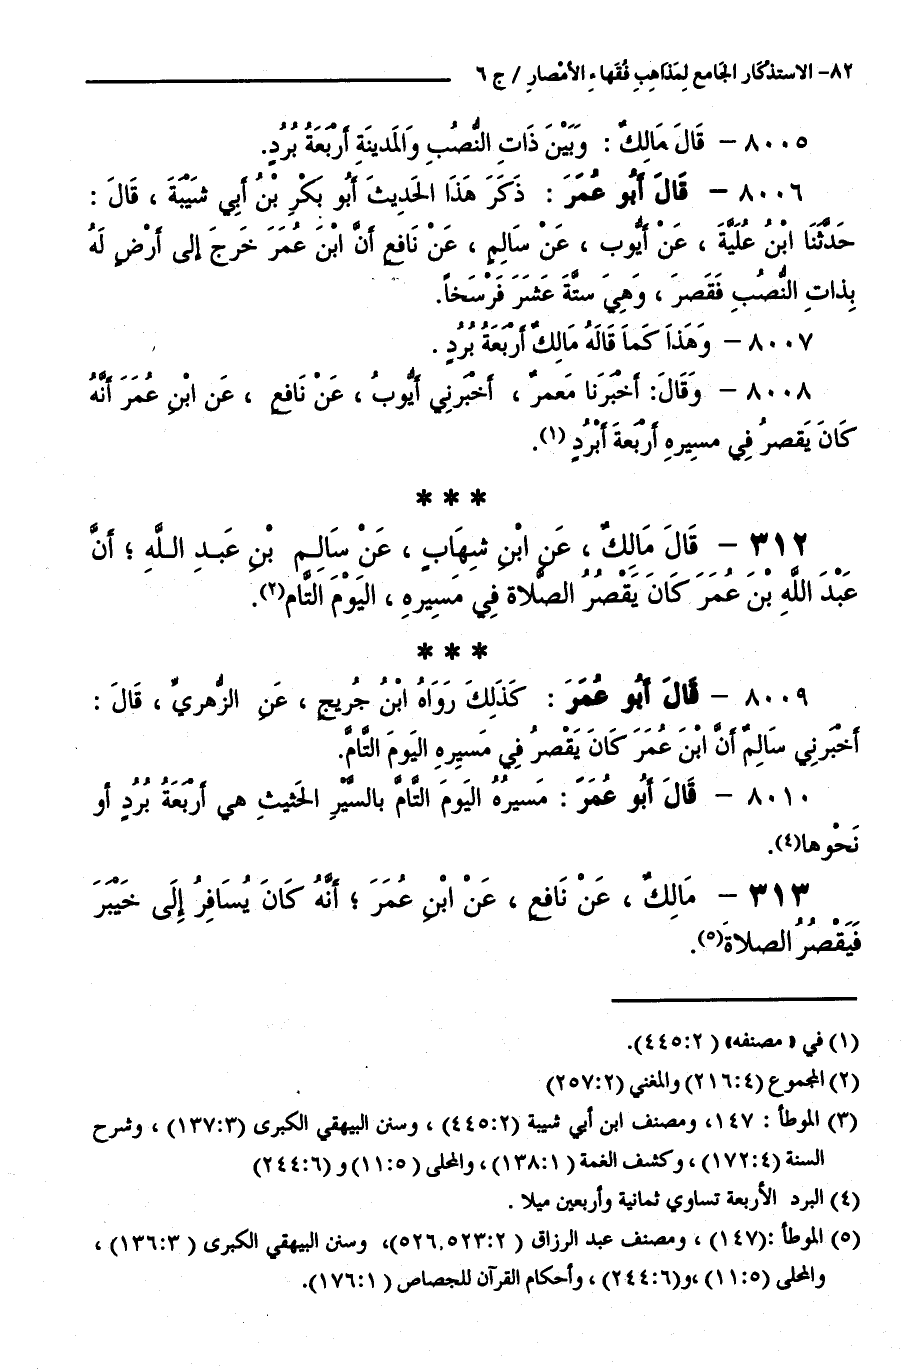 ٨٢- الاستذكار الجامع لمذاهب فقهاء الأمصار / ج ٦
٨٠٠٥ - قَالَ مَالِكٌ : وَبَيْنَ ذَاتِ النُّصُبِ وَالمَدينَةِ أَرْبَعَةُ بُرُدٍ.
٨٠٠٦ - قَالَ أَبُو عُمَرَ : ذَكَرَ هَذَا الحَديثَ أَبُو بَكْرِ بْنُ أَبِي شَيْبَةَ ، قَالَ :
حَدَّثَنَا ابْنُ عُلَيَّةَ ، عَنْ أَيُّوب ، عَنْ سَالِمٍ ، عَنْ نَافِعٍ أَنَّ ابْنَ عُمَرَ خَرجَ إلى أَرْضٍ لَهُ
بِذاتِ النُّصُبِ فَقَصرَ ، وَهِيَ ستَّةَ عَشَرَ فَرْسَخاً.
٨٠٠٧ - وَهَذَا كَمَا قَالَهُ مَالِكٌ أَرْبَعَةُ بُرُدٍ .
٨٠٠٨ - وَقَالَ: أَخْبَرَنَا مَعمرٌ ، أَخْبَرنِي أَيُّوبُ ، عَنْ نَافعٍ ، عَن ابْنِ عُمَرَ أَنَّهُ
كَانَ يَقصرُ فِي مسيرهِ أَرْبَعةَ أَبْرُدٍ (١).
***
٣١٢ - قَالَ مَالِكٌ ، عَنِ ابْنِ شِهَابٍ ، عَنْ سَالِمِ بْنِ عَبدِ اللَّهِ ؛ أَنَّ
عَبْدَ اللَّهِ بْنَ عُمَرَ كَانَ يَقْصُرُ الصَّلاة فِي مَسِيرهِ ، اليَوْمَ التَّام(٢).
***
٨٠٠٩ - قَالَ أَبُو عُمَرَ : كَذَلِكَ رَوَاهُ ابْنُ جُريجٍ ، عَنِ الزُّهريِّ ، قَالَ :
أَخْبَرنِي سَالِمٌ أَنَّ ابْنَ عُمَرَ كَانَ يَقْصرُ فِي مَسيرِهِ اليَومَ التَّامَّ.
٨٠١٠ - قَالَ أَبُو عُمَرَ : مَسيرُهُ اليَومَ التَّامَّ بالسَّيْرِ الحَثيثِ هي أَرْبَعَةُ بُرُدٍ أو
نَحْوها(٤).
٣١٣ - مَالِكٌ ، عَنْ نَافعٍ ، عَنْ ابْنِ عُمَرَ ؛ أَنَّهُ كَانَ يُسَافِرُ إِلَى خَيْبَرَ
فَيَقْصُرُ الصلاةَ(٥).
(١) في « مصنفه» ( ٤٤٥:٢).
(٢) المجموع (٢١٦:٤) والمغني (٢٥٧:٢)
(٣) الموطأ : ١٤٧، ومصنف ابن أبي شيبة (٤٤٥:٢) ، وسنن البيهقي الكبرى (١٣٧:٣) ، وشرح
السنة (١٧٢:٤) ، وكشف الغمة ( ١٣٨:١) ، والمحلى ( ١١:٥) و (٢٤٤:٦)
(٤) البرد الأربعة تساوي ثمانية وأربعين ميلا .
(٥) الموطأ :(١٤٧) ، ومصنف عبد الرزاق ( ٥٢٦,٥٢٣:٢)، وسنن البيهقي الكبرى ( ١٣٦:٣) ،
والمحلى (١١:٥) ،و(٢٤٤:٦) ، وأحكام القرآن للجصاص ( ١٧٦:١).